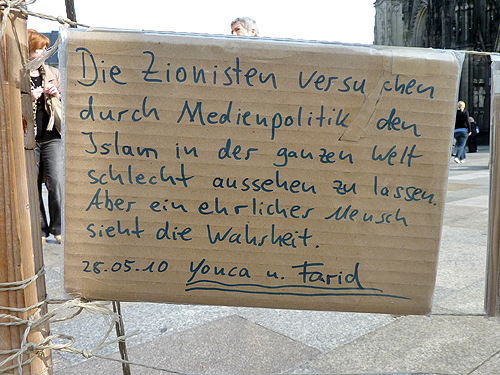 Die Zionisten versuchen
durch Medienpolitik den
Islam in der ganzen Welt
schlecht aussehen zu lassen.
Aber ein ehrlicher Mensch
sieht die Wahrheit.
28.05.10 Yonca u. Farid